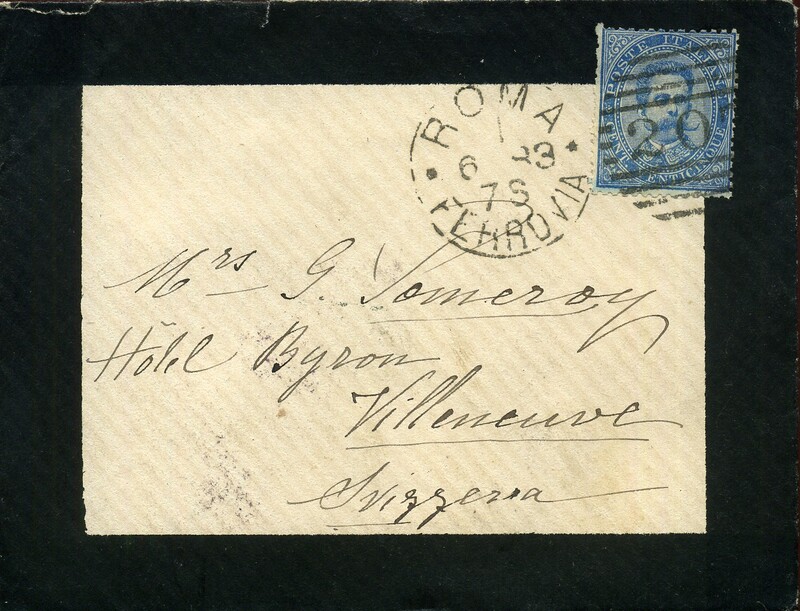 POSTE ITALIANE
CENT. VENTICINQUE
29
ROMA
6 83
7S
FERROVIA
Mrs G. Pomeroy
Hôtel Byron
Villeneuve
Svizzera